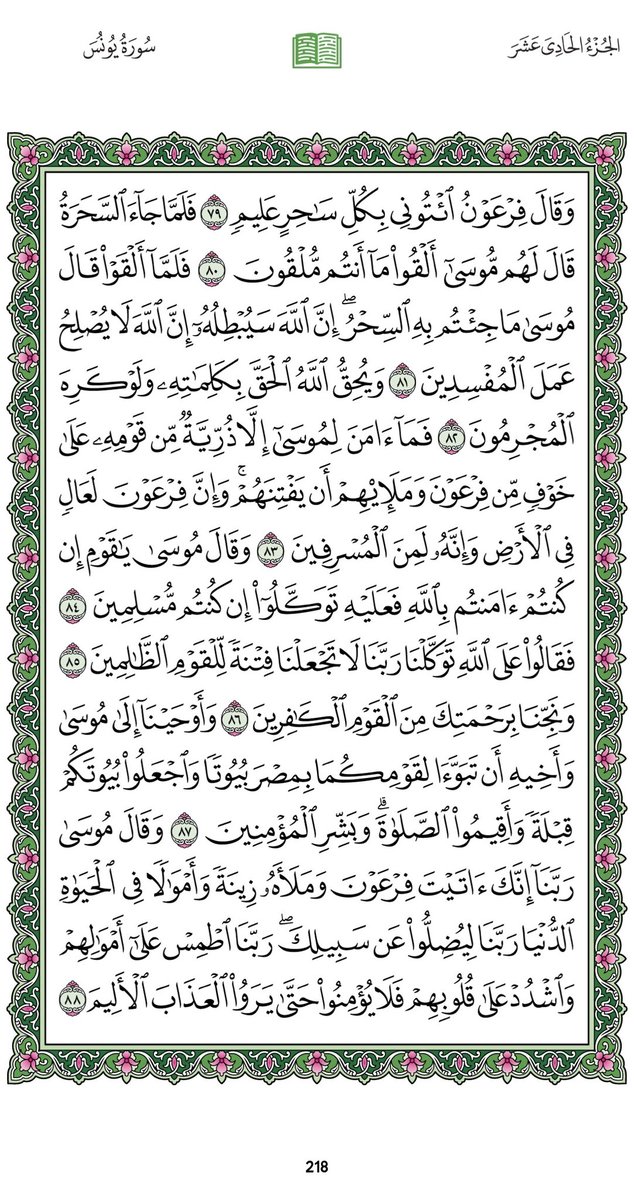 الجُزْءُ الحَادِي عَشَرَ
سُورَةُ يُونُسَ
وَقَالَ فِرْعَوْنُ ٱئْتُونِى بِكُلِّ سَٰحِرٍ عَلِيمٍ ٧٩ فَلَمَّا جَآءَ ٱلسَّحَرَةُ
قَالَ لَهُم مُّوسَىٰٓ أَلْقُوا۟ مَآ أَنتُم مُّلْقُونَ ٨٠ فَلَمَّآ أَلْقَوْا۟ قَالَ
مُوسَىٰ مَا جِئْتُم بِهِ ٱلسِّحْرُ ۖ إِنَّ ٱللَّهَ سَيُبْطِلُهُۥٓ إِنَّ ٱللَّهَ لَا يُصْلِحُ
عَمَلَ ٱلْمُفْسِدِينَ ٨١ وَيُحِقُّ ٱللَّهُ ٱلْحَقَّ بِكَلِمَٰتِهِۦ وَلَوْ كَرِهَ
ٱلْمُجْرِمُونَ ٨٢ فَمَآ ءَامَنَ لِمُوسَىٰٓ إِلَّا ذُرِّيَّةٌ مِّن قَوْمِهِۦ عَلَىٰ
خَوْفٍ مِّن فِرْعَوْنَ وَمَلَإِي۟هِمْ أَن يَفْتِنَهُمْ ۚ وَإِنَّ فِرْعَوْنَ لَعَالٍ
فِى ٱلْأَرْضِ وَإِنَّهُۥ لَمِنَ ٱلْمُسْرِفِينَ ٨٣ وَقَالَ مُوسَىٰ يَٰقَوْمِ إِن
كُنتُمْ ءَامَنتُم بِٱللَّهِ فَعَلَيْهِ تَوَكَّلُوٓا۟ إِن كُنتُم مُّسْلِمِينَ ٨٤
فَقَالُوا۟ عَلَى ٱللَّهِ تَوَكَّلْنَا رَبَّنَا لَا تَجْعَلْنَا فِتْنَةً لِّلْقَوْمِ ٱلظَّٰلِمِينَ ٨٥
وَنَجِّنَا بِرَحْمَتِكَ مِنَ ٱلْقَوْمِ ٱلْكَٰفِرِينَ ٨٦ وَأَوْحَيْنَآ إِلَىٰ مُوسَىٰ
وَأَخِيهِ أَن تَبَوَّءَا لِقَوْمِكُمَا بِمِصْرَ بُيُوتًا وَٱجْعَلُوا۟ بُيُوتَكُمْ
قِبْلَةً وَأَقِيمُوا۟ ٱلصَّلَوٰةَ ۗ وَبَشِّرِ ٱلْمُؤْمِنِينَ ٨٧ وَقَالَ مُوسَىٰ
رَبَّنَآ إِنَّكَ ءَاتَيْتَ فِرْعَوْنَ وَمَلَأَهُۥ زِينَةً وَأَمْوَٰلًا فِى ٱلْحَيَوٰةِ
ٱلدُّنْيَا رَبَّنَا لِيُضِلُّوا۟ عَن سَبِيلِكَ ۖ رَبَّنَا ٱطْمِسْ عَلَىٰٓ أَمْوَٰلِهِمْ
وَٱشْدُدْ عَلَىٰ قُلُوبِهِمْ فَلَا يُؤْمِنُوا۟ حَتَّىٰ يَرَوُا۟ ٱلْعَذَابَ ٱلْأَلِيمَ ٨٨
218